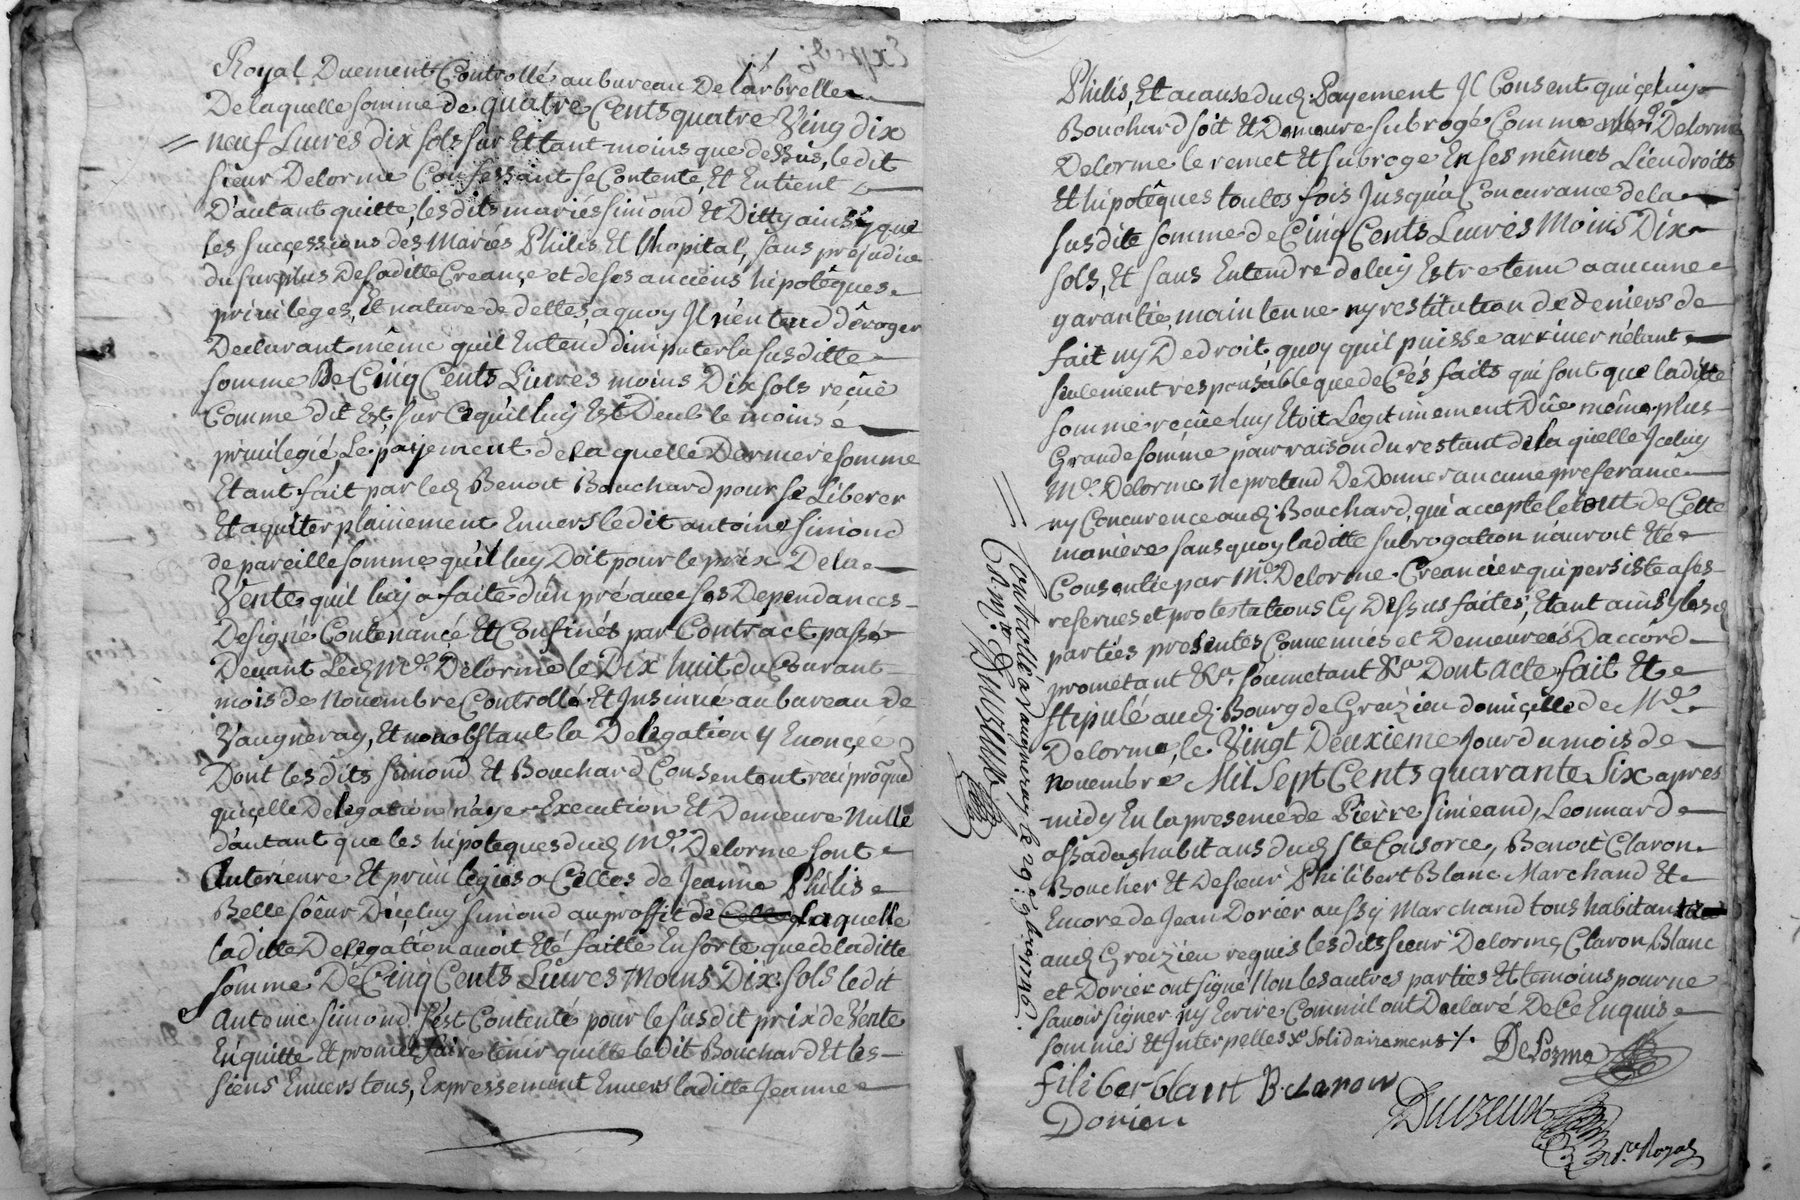 Royal Duement Controllé au bureau De l'arbrelle
De laquelle somme de quatre Cents quatre Ving dix
neuf Livres dix sols sur Et tant moins que dessus, le dit
sieur Delorme Confessant se Contente, Et En tient
D'autant quitte, les dits mariés simond Et Ditty ainsy que
les successions des Mariés Philis Et lhopital, sans prejudice
du surplus De sa ditte Creançe et de ses anciens hipotêques
privileges, Et nature de dettes, a quoy Jl n'entend dêroger
Declarant même qu'il Entend d'imputer la susditte
somme De Cinq Cents Livres moins Dix sols reçüe
Comme dit Est, sur Ce qu'il luy Est Deub le moins
privilegié, Le payement de la quelle Derniere somme
Etant fait par led. Benoit Bouchard pour se Liberer
Et aquiter plainement Envers le dit antoine simond
de pareille somme qu'il luy Doit pour le prix De la
Vente qu'il luy a faite d'un pré avec ses Dependances
Designé Contenancé Et Confinés par Contract passé
Devant Led. Me. Delorme le Dix huit du Courant
mois de novembre Controllé Et Jnsinué au bureau de
Vaugneray, Et nonobstant la Delegation y Enonçée
Dont les dits simond Et Bouchard Consentent reciproqued
qu'içelle Delegation n'aye Execution Et Demeure Nulle
d'autant que les hipoteques dud. Me. Delorme sont
Anterieure Et privilegiés a Celles de Jeanne Philis
Belle sœur D'içeluy simond au proffit de Celle laquelle
la ditte Delegation avoit Eté faitte En sorte que de la ditte
somme De Cinq Cents Livres Moins Dix sols le dit
Antoine simond s'est Contenté pour le susdit prix de Vente
En quitte Et promet faire tenir quitte le dit Bouchard Et les
siens Envers tous, Expressement Envers la ditte Jeanne
Philis, Et a cause dud. Payement Jl Consent qu'içeluy
Bouchard soit Et Demeure subrogé Comme Delorme
Delorme le remet Et subroge En ses mêmes Lieu droits
Et hipotêques toutes fois Jusqu'a Concurance de la
susdite somme de Cinq Cents Livres Moins Dix
sols, Et sans Entendre de luy Estre tenu a aucune
garantie, maintenue ny restitution de deniers de
fait ny De droit, quoy qu'il puisse arriver n'étant
seulement responsable que de Cés faits qui sont que la ditte
somme reçüe luy Etoit Legitimement Düe même plus
Grande somme pour raison du restant de la quelle Jceluy
Me. Delorme Ne pretend De Donner aucune preferance
ny Concurence aud. Bouchard, qui accepte le tout de Cette
maniere sans quoy la ditte subrogation n'auroit Eté
Consentie par Me. Delorme Creancier qui persiste a ses
reserves et protestations Cy Dessus faites, Etant ainsy lesd.
parties presentes Convenües et Demeureés D'accord
prometant &a. soumetant &a. Dont Acte fait Et
stipulé aud. Bourg de Greizieu domiçille de Me.
Delorme, le Vingt Deuxieme Jour du mois de
novembre Mil Sept Cents quarante Six apres
midy En la presence de Pierre simeand, Leonnard
assada habitans dud. Ste Consorce, Benoit Claron
Boucher Et De sieur Philibert Blanc Marchand Et
Encore de Jean Dorier aussy Marchand tous habitants
aud. Greizieu requis les dits sieur Delorme, Claron, Blanc
et Dorier ont signé Non les autres parties Et temoins pour ne
savoir signer ny Ecrire Comm'il ont Declaré De Ce Enquis
sommés Et Jnterpellés & Solidairement /.
Delorme
filiber blant B. claron
Dorier
Duvieux
Nre. Royal
Controllé a Vaugneray le 29e. 9bre. 1746.
Duvieux